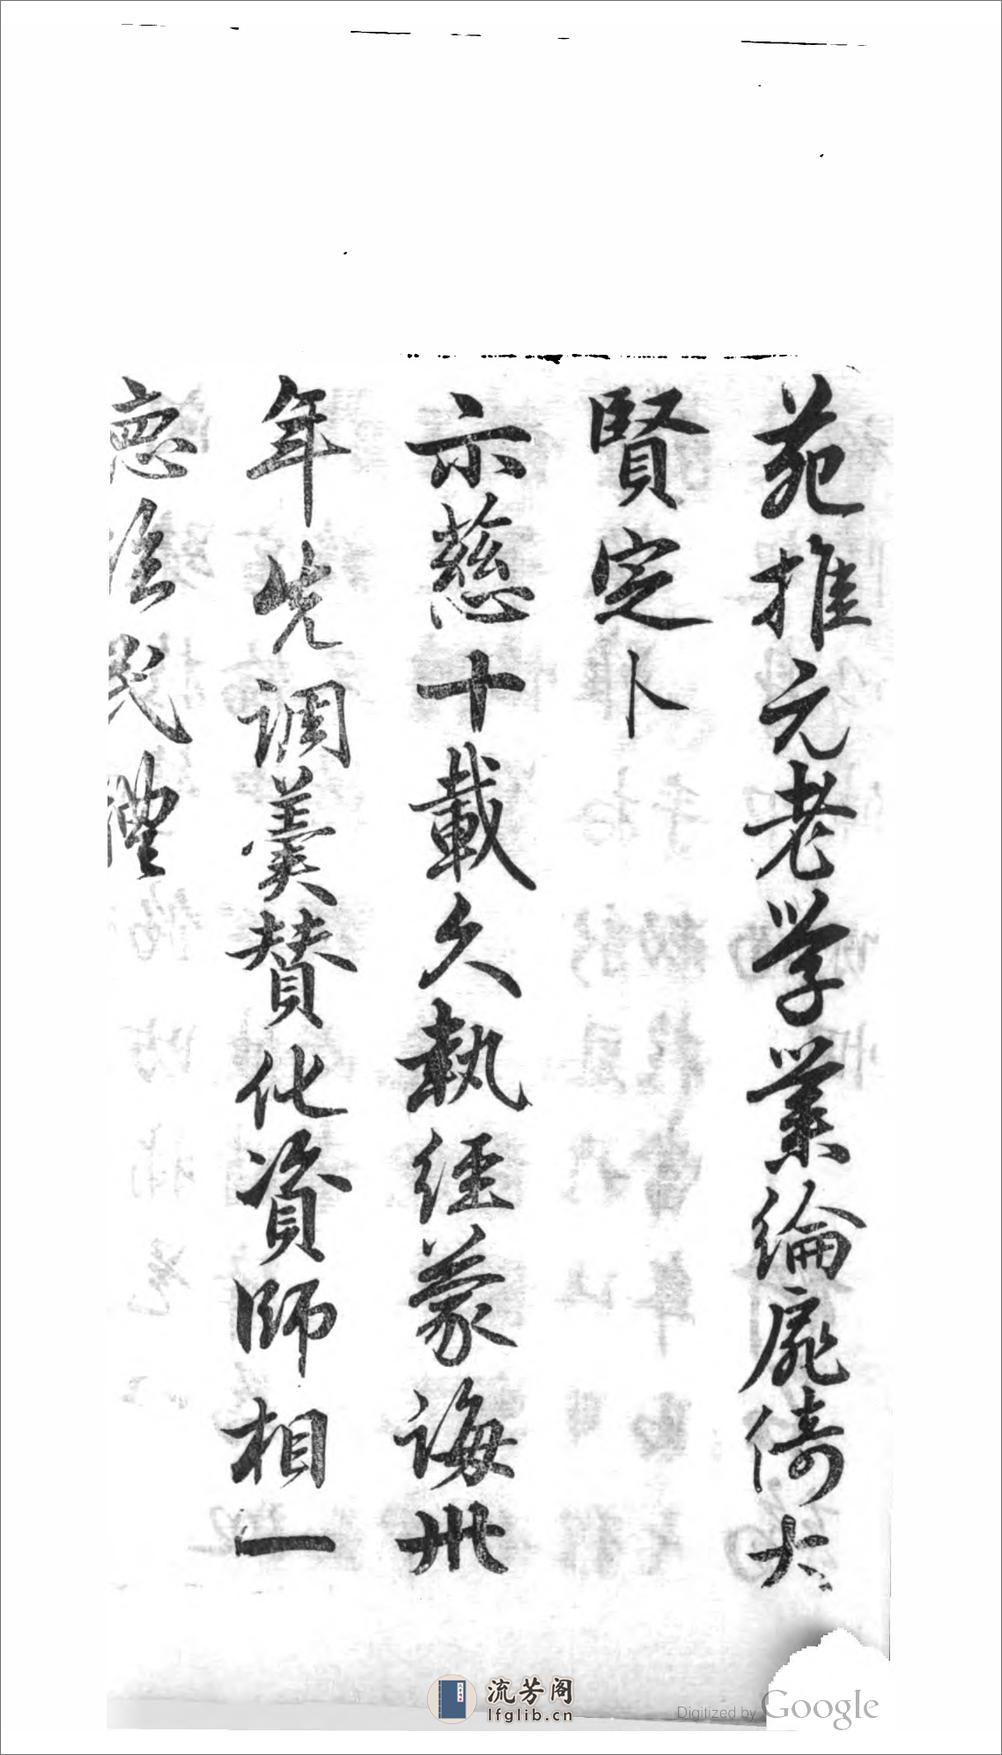 苑推元老学業綸扉倚大
賢定卜
示慈十載久執經蒙誨卅
年先調羹賛化資師相一
德 民
流芳阁
lfglib.cn
Digitized by Google